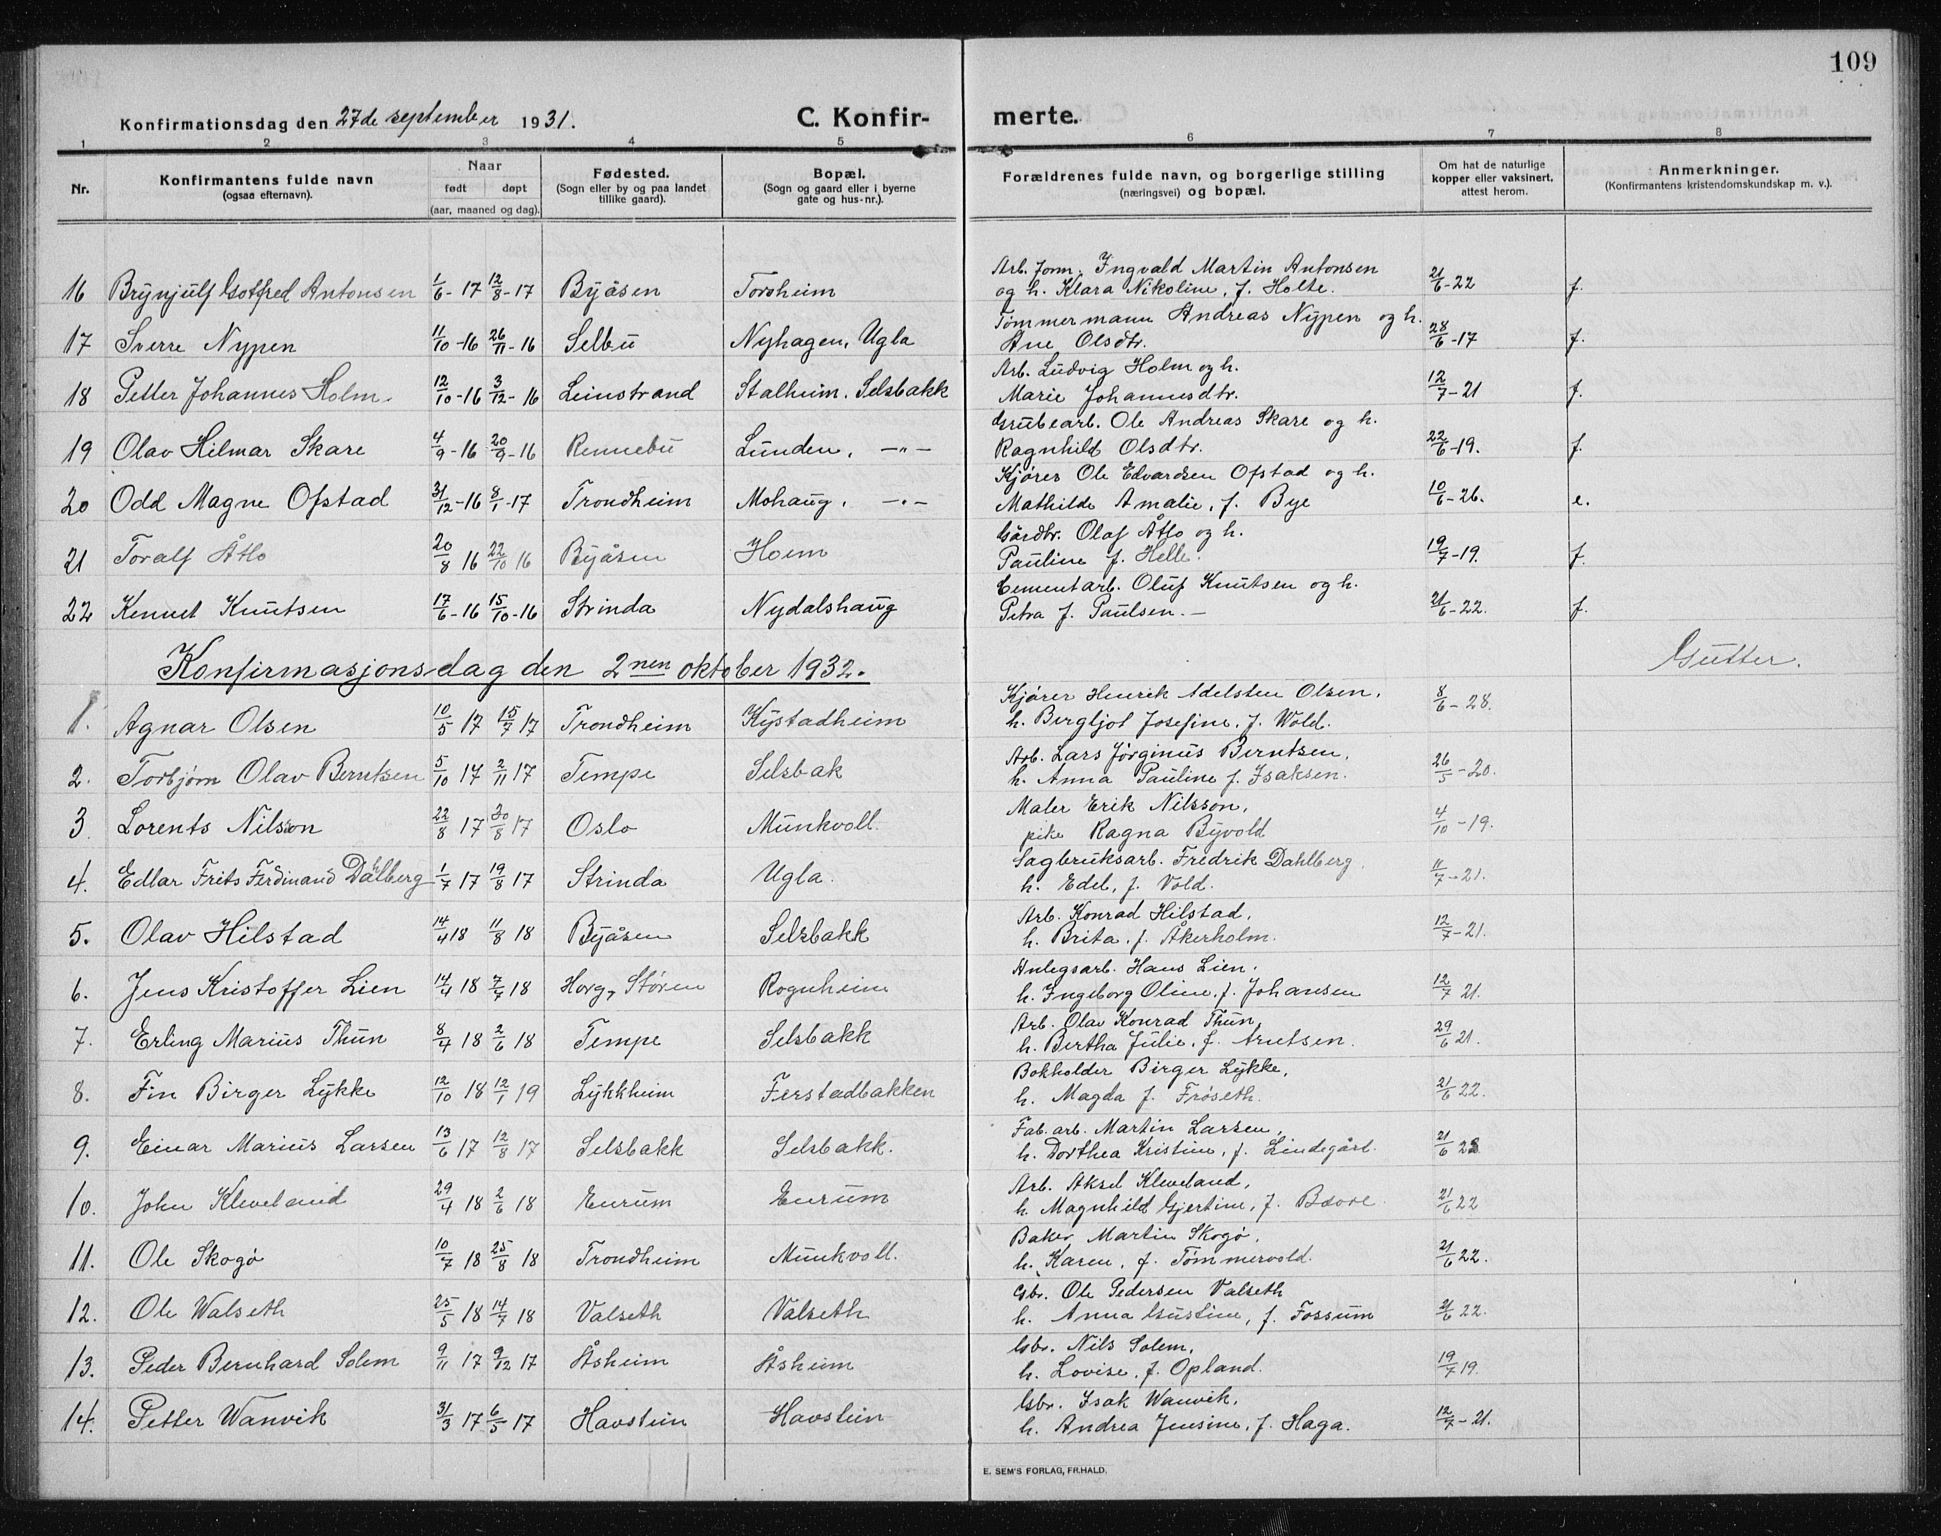 109
Konfirmationsdag den 27de september 1931. C. Konfirmerte.
1 2 3 4 5 6 7 8
Nr. Konfirmantens fulde navn (ogsaa efternavn). Naar født døpt (aar, maaned og dag). Fødested. (Sogn eller by og paa landet tillike gaard). Bopæl. (Sogn og gaard eller i byerne gate og hus-nr.). Forældrenes fulde navn, og borgerlige stilling (næringsvei) og bopæl. Om hat de naturlige kopper eller vaksinert, attest herom. Anmerkninger. (Konfirmantens kristendomskundskap m. v.).
Arb. form. Ingvald Martin Antonsen
16 Brynjulf Gotfred Antonsen 1/6-17 12/8-17 Byåsen Torsheim og h. Klara Nikoline, f. Holte. 21/6-22 f.
Tømmermann Andreas Nypen og h.
17 Sverre Nypen 11/10-16 26/11-16 Selbu Nyhagen, Ugla Ane Olsdtr. 28/6-17 f.
Arb. Ludvig Holm og h.
18 Petter Johannes Holm. 12/10-16 3/12-16 Leinstrand Stalheim, Selsbakk Marie Johannesdtr. 12/7-21 f.
Grubearb. Ole Andreas Skare og h.
19 Olav Hilmar Skare 4/9-16 20/9-16 Rennebu Lunden, -"- Ragnhild Olsdtr. 22/6-19. f.
Kjører Ole Edvardsen Ofstad og h.
20 Odd Magne Ofstad 31/12-16 8/1-17 Trondheim Mohaug, -"- Mathilde Amalie, f. Bye 10/6-26. e.
Gårdbr. Olaf Åtlo og h.
21 Toralf Åtlo 20/8 16 22/10 16 Byåsen Hoem Pauline f. Helle. 19/7-19. f.
Cementarb. Oluf Knutsen og h.
22 Kennet Knutsen 17/6-16 15/10-16 Strinda Nydalshaug Petra f. Paulsen.- 21/6-22. f.
Konfirmasjonsdag den 2nen oktober 1932. Gutter.
Kjører Henrik Adelsten Olsen,
1. Agnar Olsen 10/5 17 15/7 17 Trondheim Kystadheim h. Bergljot Josefine, f. Wold. 8/6-28.
Arb. Lars Jørginus Berntsen,
2. Torbjørn Olav Berntsen 5/10 17 2/11 17 Tempe Selsbak h. Anna Pauline f. Isaksen. 26/5-20.
Maler Erik Nilsson,
3. Lorents Nilsson 22/8 17 30/8 17 Oslo Munkvoll. pike Ragna Byvold 4/10-19.
Sagbruksarb. Fredrik Dahlberg,
4. Edlar Frits Ferdinand Dahlberg 1/7 17 19/8 17 Strinda Ugla. h. Edel, f. Vold. 11/7-21.
Arb. Konrad Hilstad,
5. Olav Hilstad 14/4 18 11/8 18 Byåsen Selsbakk h. Brita, f. Åkerholm. 12/7-21.
Anlegsarb. Hans Lien,
6. Jens Kristoffer Lien 14/4 18 7/7 18 Horg, Støren Rognheim h. Ingeborg Oline, f. Johansen 12/7 21.
Arb. Olav Konrad Thun,
7. Erling Marius Thun 8/4 18 2/6 18 Tempe Selsbakk h. Bertha Julie, f. Arntsen. 29/6 21.
Bokholder Birger Lykke,
8. Fin Birger Lykke 12/10 18 12/1 19 Lykkheim Ferstadbakken h. Magda f. Frøseth. 21/6 22.
Fab. arb. Martin Larsen,
9. Einar Marius Larsen 13/6 17 12/8 17 Selsbakk Selsbakk. h. Dorthea Kristine, f. Lindegård. 21/6 22
Arb. Aksel Kleveland,
10. John Kleveland 29/4 18 2/6 18 Enrum Enrum h. Magnhild Gjertine, f. Bævre. 21/6 22
Baker Martin Skogø,
11. Ole Skogø 10/7 18 25/8 18 Trondheim Munkvoll. h. Karen, f. Tømmervold. 21/6 22.
Gbr. Ole Pedersen Valseth
12. Ole Walseth 25/5 18 14/7 18 Valseth Valseth h. Anna Gustine, f. Fossum 21/6 22.
Gbr. Nils Solem,
13. Peder Bernhard Solem 9/11 17 9/12 17 Åsheim Åsheim h. Lovise, f. Opland. 19/7 19.
Gbr. Isak Wanvik,
14. Petter Wanvik 31/3 17 6/5 17 Havstein Havstein h. Andrea Jensine, f. Haga. 12/7-21.
E. SEM'S FORLAG, FR.HALD.